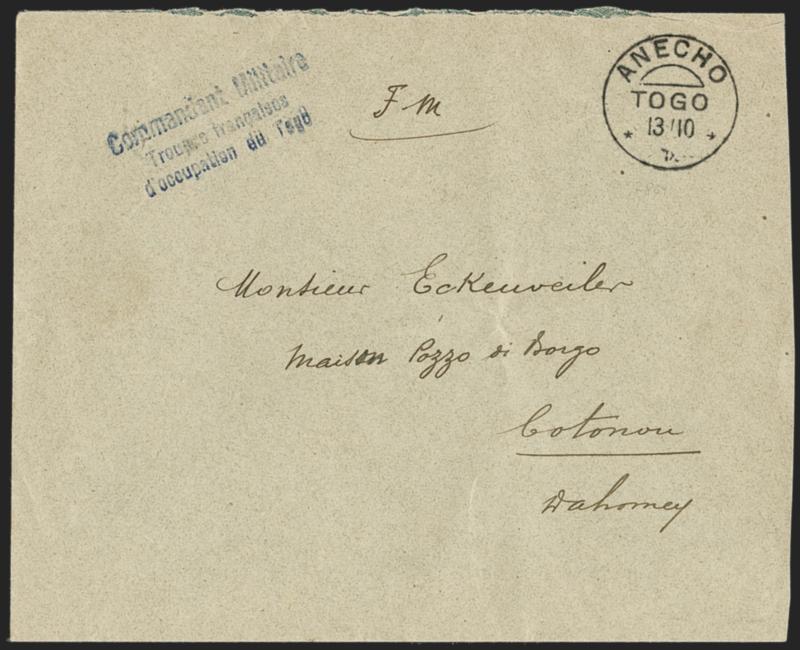 Commandant Militaire
Troupes françaises
d'occupation du Togo
F M
ANECHO
TOGO
* 13/10 *
Monsieur Eckenweiler
Maison Pozzo di Borgo
Cotonou
Dahomey